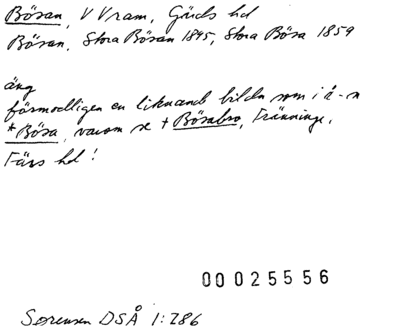 Bösan, V Vram, Gärds hd
Bösan, Stora Bösan 1845, Stora Bösa 1859
äng
förmodligen en liknande bildn som i å-n
*Bösa, varom se + Bösabro, Tränninge,
Färs hd!
00025556
Sørensen DSÅ 1:286